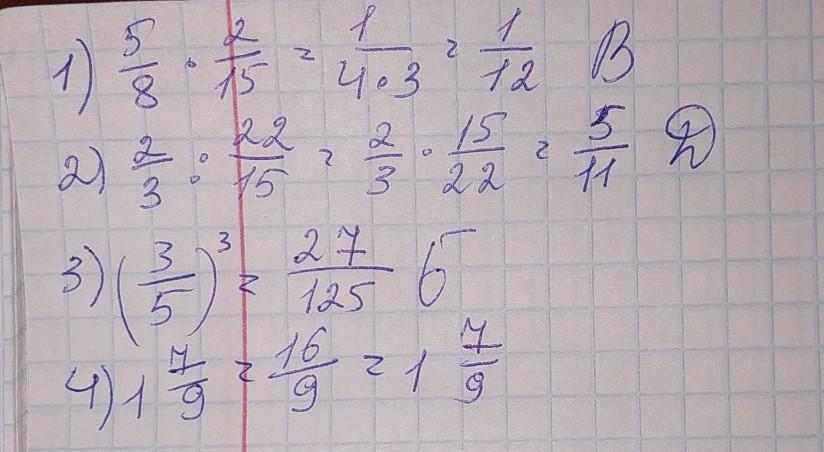 1) 5/8 · 2/15 = 1/(4·3) = 1/12 В
2) 2/3 : 22/15 = 2/3 · 15/22 = 5/11 Д
3) (3/5)³ = 27/125 б
4) 1 7/9 = 16/9 = 1 7/9